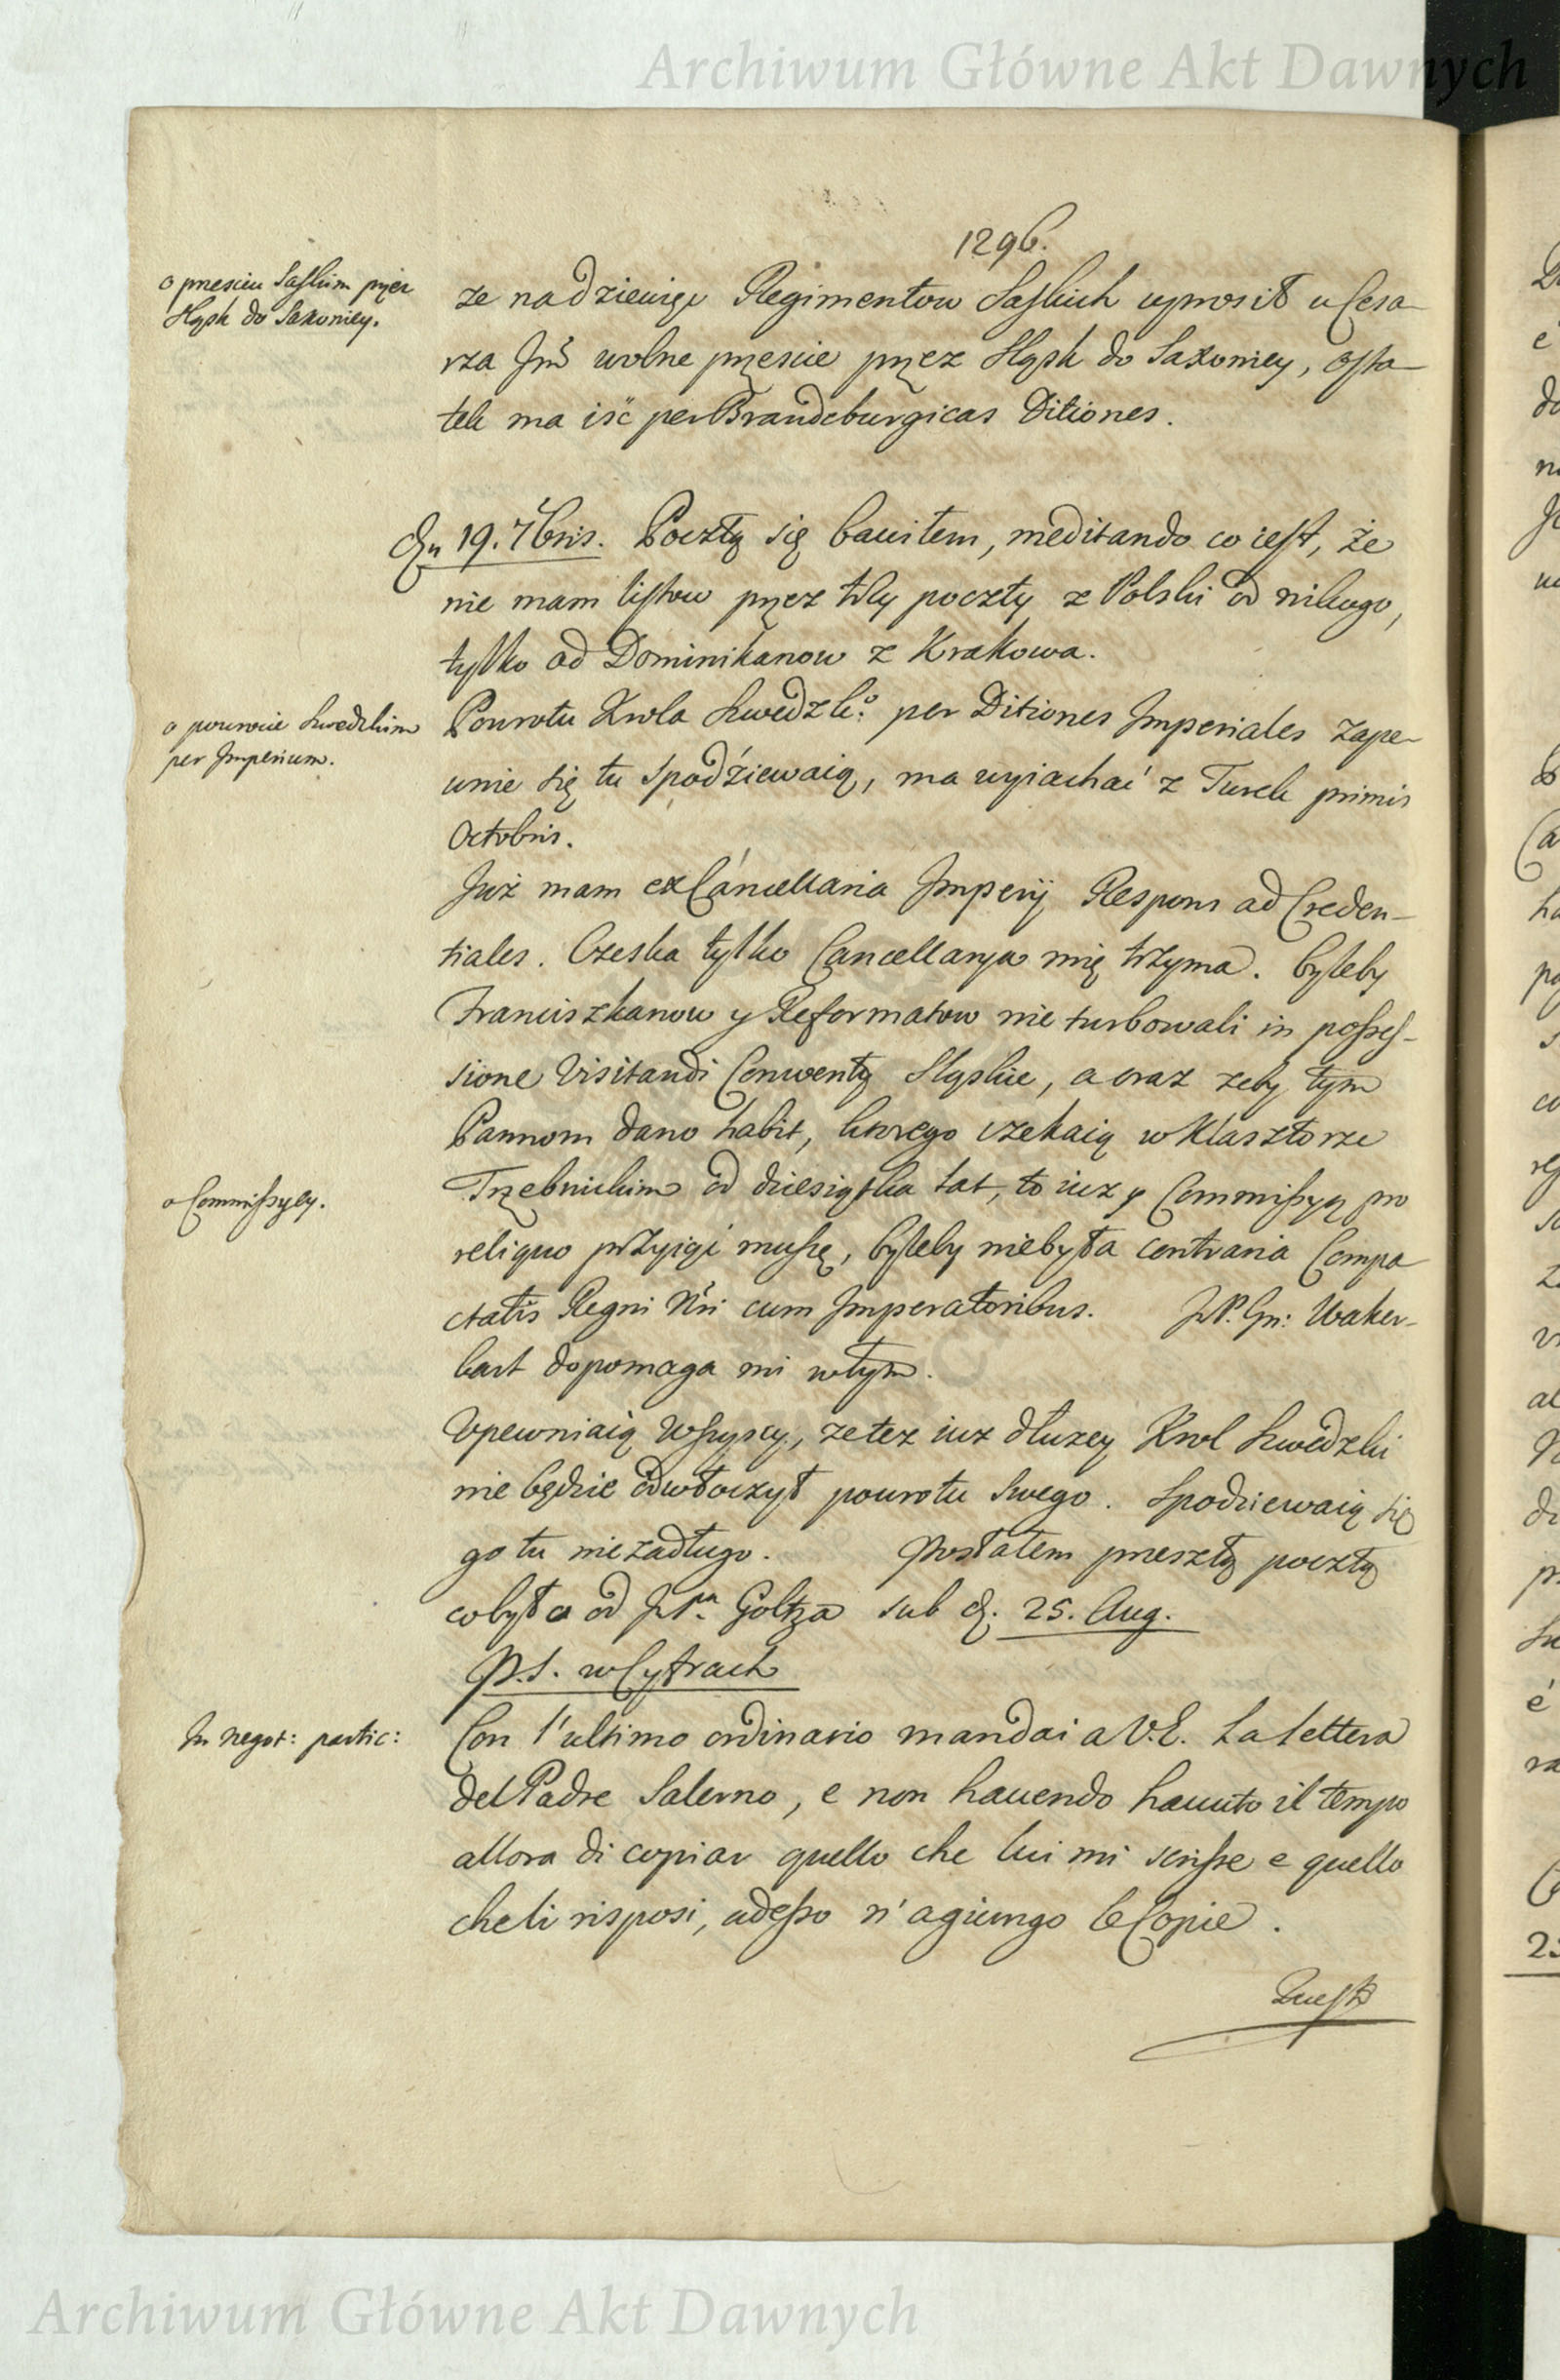 Archiwum Główne Akt Dawnych
1296.
o przesciu Saskim przez
Sląsk do Saxoniey.
ze na dziewięc Regimentow Saskich uprosił u Cesa-
rza Jmś wolne przescie przez Sląsk do Saxoniey, osta-
tek ma iść per Brandeburgicas Ditiones.
Dn 19. 7bris. Pocztą się bawiłem, meditando co iest, że
nie mam listow przez trzy poczty z Polski od nikogo,
tylko od Dominikanow z Krakowa.
o powrocie Szwedzkim
per Imperium.
Powrotu Krola Szwedzk:o per Ditiones Imperiales zape-
wnie się tu spodźiewaią, ma wyiachać z Turek primis
Octobris.
Już mam ex Cancellaria Imperij Respons ad Creden-
tiales. Czeska tylko Cancellarya mię trzyma. byleby
Franciszkanow y Reformatow nie turbowali in posses-
sione visitandi Conwenty Sląskie, a oraz zeby tym
Pannom dano habit, ktorego czekaią w Klasztorze
o Commissyey.
Trzebnickim od dziesiątka lat, to iuz y Commissyą pro
reliquo przyiąć muszę, byleby niebyła contraria Compa-
ctatis Regni Nři cum Imperatoribus. JP. Gn: Waker-
bart dopomaga mi wtym.
Upewniaią wszyscy, ze tez iuz dłuzey Krol Szwedzki
nie będzie odwłoczył powrotu swego. Spodziewaią się
go tu niezadługo. Posłałem przeszłą pocztą
co była od JPa Goltza sub d. 25. Aug.
P.S. w Cyfrach
In negot: partic:
Con l'ultimo ordinario mandai a V.E. la lettera
del Padre Salerno, e non hauendo hauuto il tempo
allora di copiar quello che lui mi scrisse e quello
che li risposi, adesso n' agiungo le Copie.
Archiwum Główne Akt Dawnych